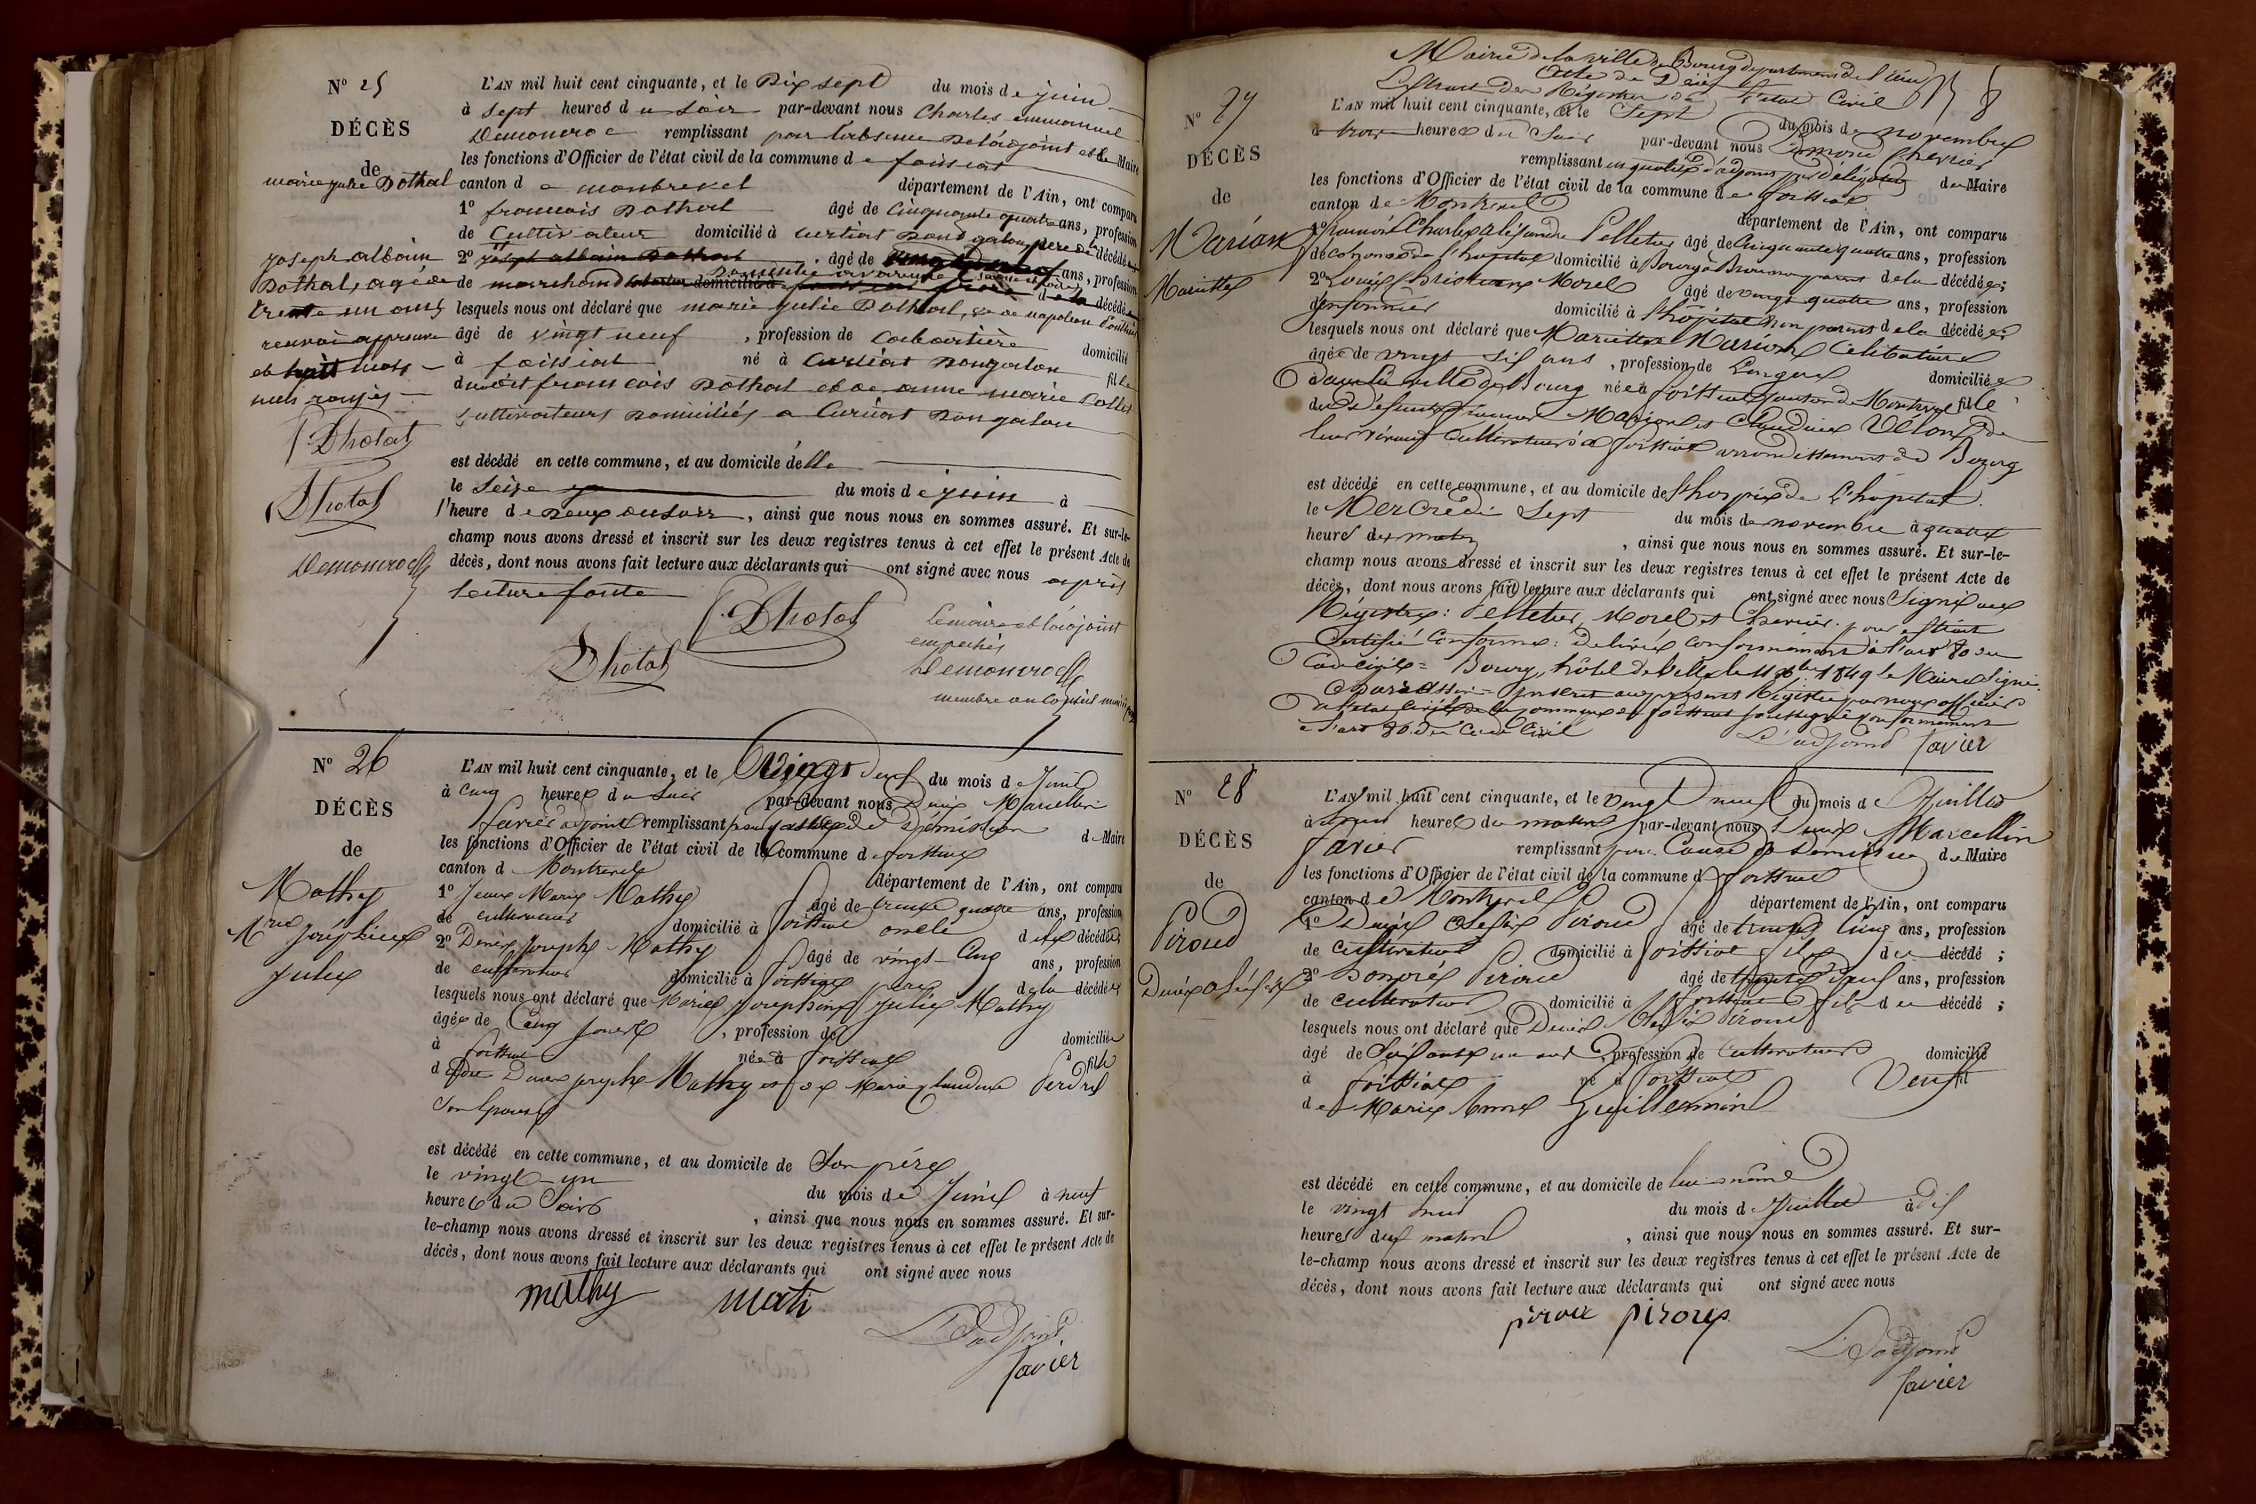 N° 25
DÉCÈS
de
marie julie Dothal
joseph albain
Dothal, agé de
trente un ans
renvoi approuvé
et huit mots
nuls rayés
J. Dhotal
Dhotal
Demoncroc
L'AN mil huit cent cinquante, et le Dix sept du mois de juin
à sept heures du soir par-devant nous Charles emmanuel
Demoncroc remplissant par l'absence de l'adjoint et de Maire
les fonctions d'Officier de l'état civil de la commune de foissiat
canton de montrevel département de l'Ain, ont comparu
1° francois Dothal âgé de cinquante quatre ans, profession
de Cultivateur domicilié à curtiat Dongalon père de la décédée
2° joseph albain Dothal âgé de ans, profession
de marchand domicilié à de la décédée
lesquels nous ont déclaré que marie julie Dothal, de napoleon
âgé de vingt neuf , profession de cabaretière domicilié
à foissiat né à Curtiat Dongalon fille
du dit francois Dothal et de anne marie Collet
cultivateurs Domiciliés a Curtiat Dongalon
est décédé en cette commune, et au domicile d'elle
le Seize du mois de juin à
l'heure de Deux du soir, ainsi que nous nous en sommes assuré. Et sur-le-
champ nous avons dressé et inscrit sur les deux registres tenus à cet effet le présent Acte de
décès, dont nous avons fait lecture aux déclarants qui ont signé avec nous après
lecture faite
J. Dhotal
Dhotal
Le maire et l'adjoint
empechés
Demoncroc
membre du Conseil municipal
N° 26
DÉCÈS
de
Mathy
Mrie Joséphine
Julie
L'AN mil huit cent cinquante, et le Vingt deux du mois de Juin
à Cinq heures du Soir par-devant nous Denis Marcellin
favier adjoint remplissant pour cause de Démission de Maire
les fonctions d'Officier de l'état civil de la commune de foissiat
canton de Montrevel département de l'Ain, ont comparu
1° Jean Marie Mathy âgé de trente quatre ans, profession
de cultivateur domicilié à foissiat oncle de la décédée;
2° Denis Joseph Mathy âgé de vingt-Cinq ans, profession
de cultivateur domicilié à foissiat père de la décédée
lesquels nous ont déclaré que Marie Josephine Julie Mathy
âgée de Cinq jours , profession de domiciliée
à foissiat née à foissiat fille
dudit Denis joseph Mathy et de Marie Claudine Perdrix
Son Epouse
est décédé en cette commune, et au domicile de Son père
le vingt-un du mois de Juin à neuf
heures du Soir , ainsi que nous nous en sommes assuré. Et sur-
le-champ nous avons dressé et inscrit sur les deux registres tenus à cet effet le présent Acte de
décès, dont nous avons fait lecture aux déclarants qui ont signé avec nous
mathy mati
L'adjoint
favier
Mairie de la ville de Bourg departement de l'ain
Acte de Décès
Extrait des Régistres de l'état Civil
N° 27
DÉCÈS
de
Marion
Mariette
L'AN mil huit cent cinquante, et le Sept du mois de novembre
à trois heures du Soir par-devant nous Edmond Chevrier
remplissant en qualité d'adjoint par délégation du Maire
les fonctions d'Officier de l'état civil de la commune de foissiat
canton de Montrevel département de l'Ain, ont comparu
1° Charles Alexandre Pelletier âgé de Cinquante quatre ans, profession
d'économe de l'hopital domicilié à Bourg non parent de la décédée;
2° Louis Christian Morel âgé de vingt quatre ans, profession
d'infirmier domicilié à l'hopital non parent de la décédée
lesquels nous ont déclaré que Mariette Marion Célibataire
âgée de vingt six ans , profession de Lingere domiciliée
dans la ville de Bourg née à foissiat canton de Montrevel fille
de défunts Marion et Claudine Velon de
leur vivant Cultivateurs à foissiat arrondissement de Bourg
est décédé en cette commune, et au domicile de l'hospice de L'hopital
le Mercredi Sept du mois de novembre à quatre
heures du matin , ainsi que nous nous en sommes assuré. Et sur-le-
champ nous avons dressé et inscrit sur les deux registres tenus à cet effet le présent Acte de
décès, dont nous avons fait lecture aux déclarants qui ont signé avec nous Signé aux
Régistres: Pelletier, Morel et Chevrier. pour extrait
Certifié Conforme: Delivré conformément à l'art 80 du
Code civil = Bourg, hôtel de Ville le 11 1849 le Maire Signé
= Inscrit aux présents Régistres par nous officier
de l'état Civil de la Commune de foissiat soussigné conformément
a l'art 80 du Code Civil
L'adjoint favier
N° 28
DÉCÈS
de
Piroud
Denis Alexis
L'AN mil huit cent cinquante, et le vingt neuf du mois de Juillet
à heures du matin par-devant nous Denis Marcellin
favier remplissant pour Cause de Démission de Maire
les fonctions d'Officier de l'état civil de la commune de foissiat
canton de Montrevel département de l'Ain, ont comparu
1° Denis Alexis Piroud âgé de trente Cinq ans, profession
de cultivateur domicilié à foissiat fils du décédé ;
2° Piroud âgé de ans, profession
de cultivateur domicilié à foissiat fils du décédé ;
lesquels nous ont déclaré que Denis Alexis Piroud
âgé de Soixante un ans , profession de Cultivateur domicilié
à foissiat né à foissiat Veuf
de Marie Anne Guillermin
est décédé en cette commune, et au domicile de lui même
le vingt huit du mois de Juillet à dix
heures du matin , ainsi que nous nous en sommes assuré. Et sur-
le-champ nous avons dressé et inscrit sur les deux registres tenus à cet effet le présent Acte de
décès, dont nous avons fait lecture aux déclarants qui ont signé avec nous
piroux piroux
L'adjoint
favier